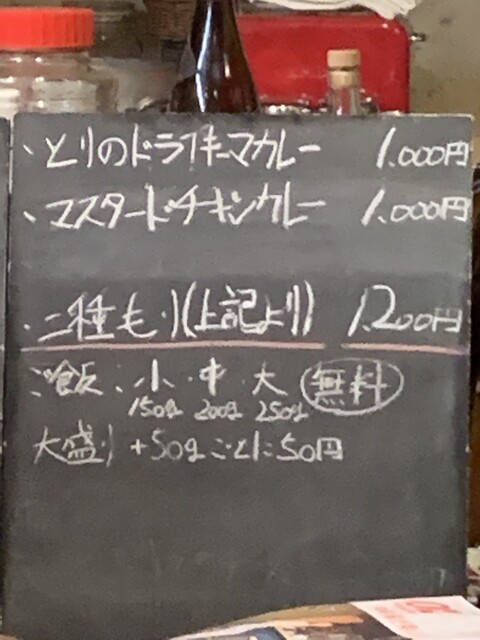 ・とりのドライキーマカレー 1,000円
・マスタードチキンカレー 1,000円
・二種もり(上記より) 1,200円
ご飯:小・中・大 無料
150g 200g 250g
大盛り +50gごとに50円